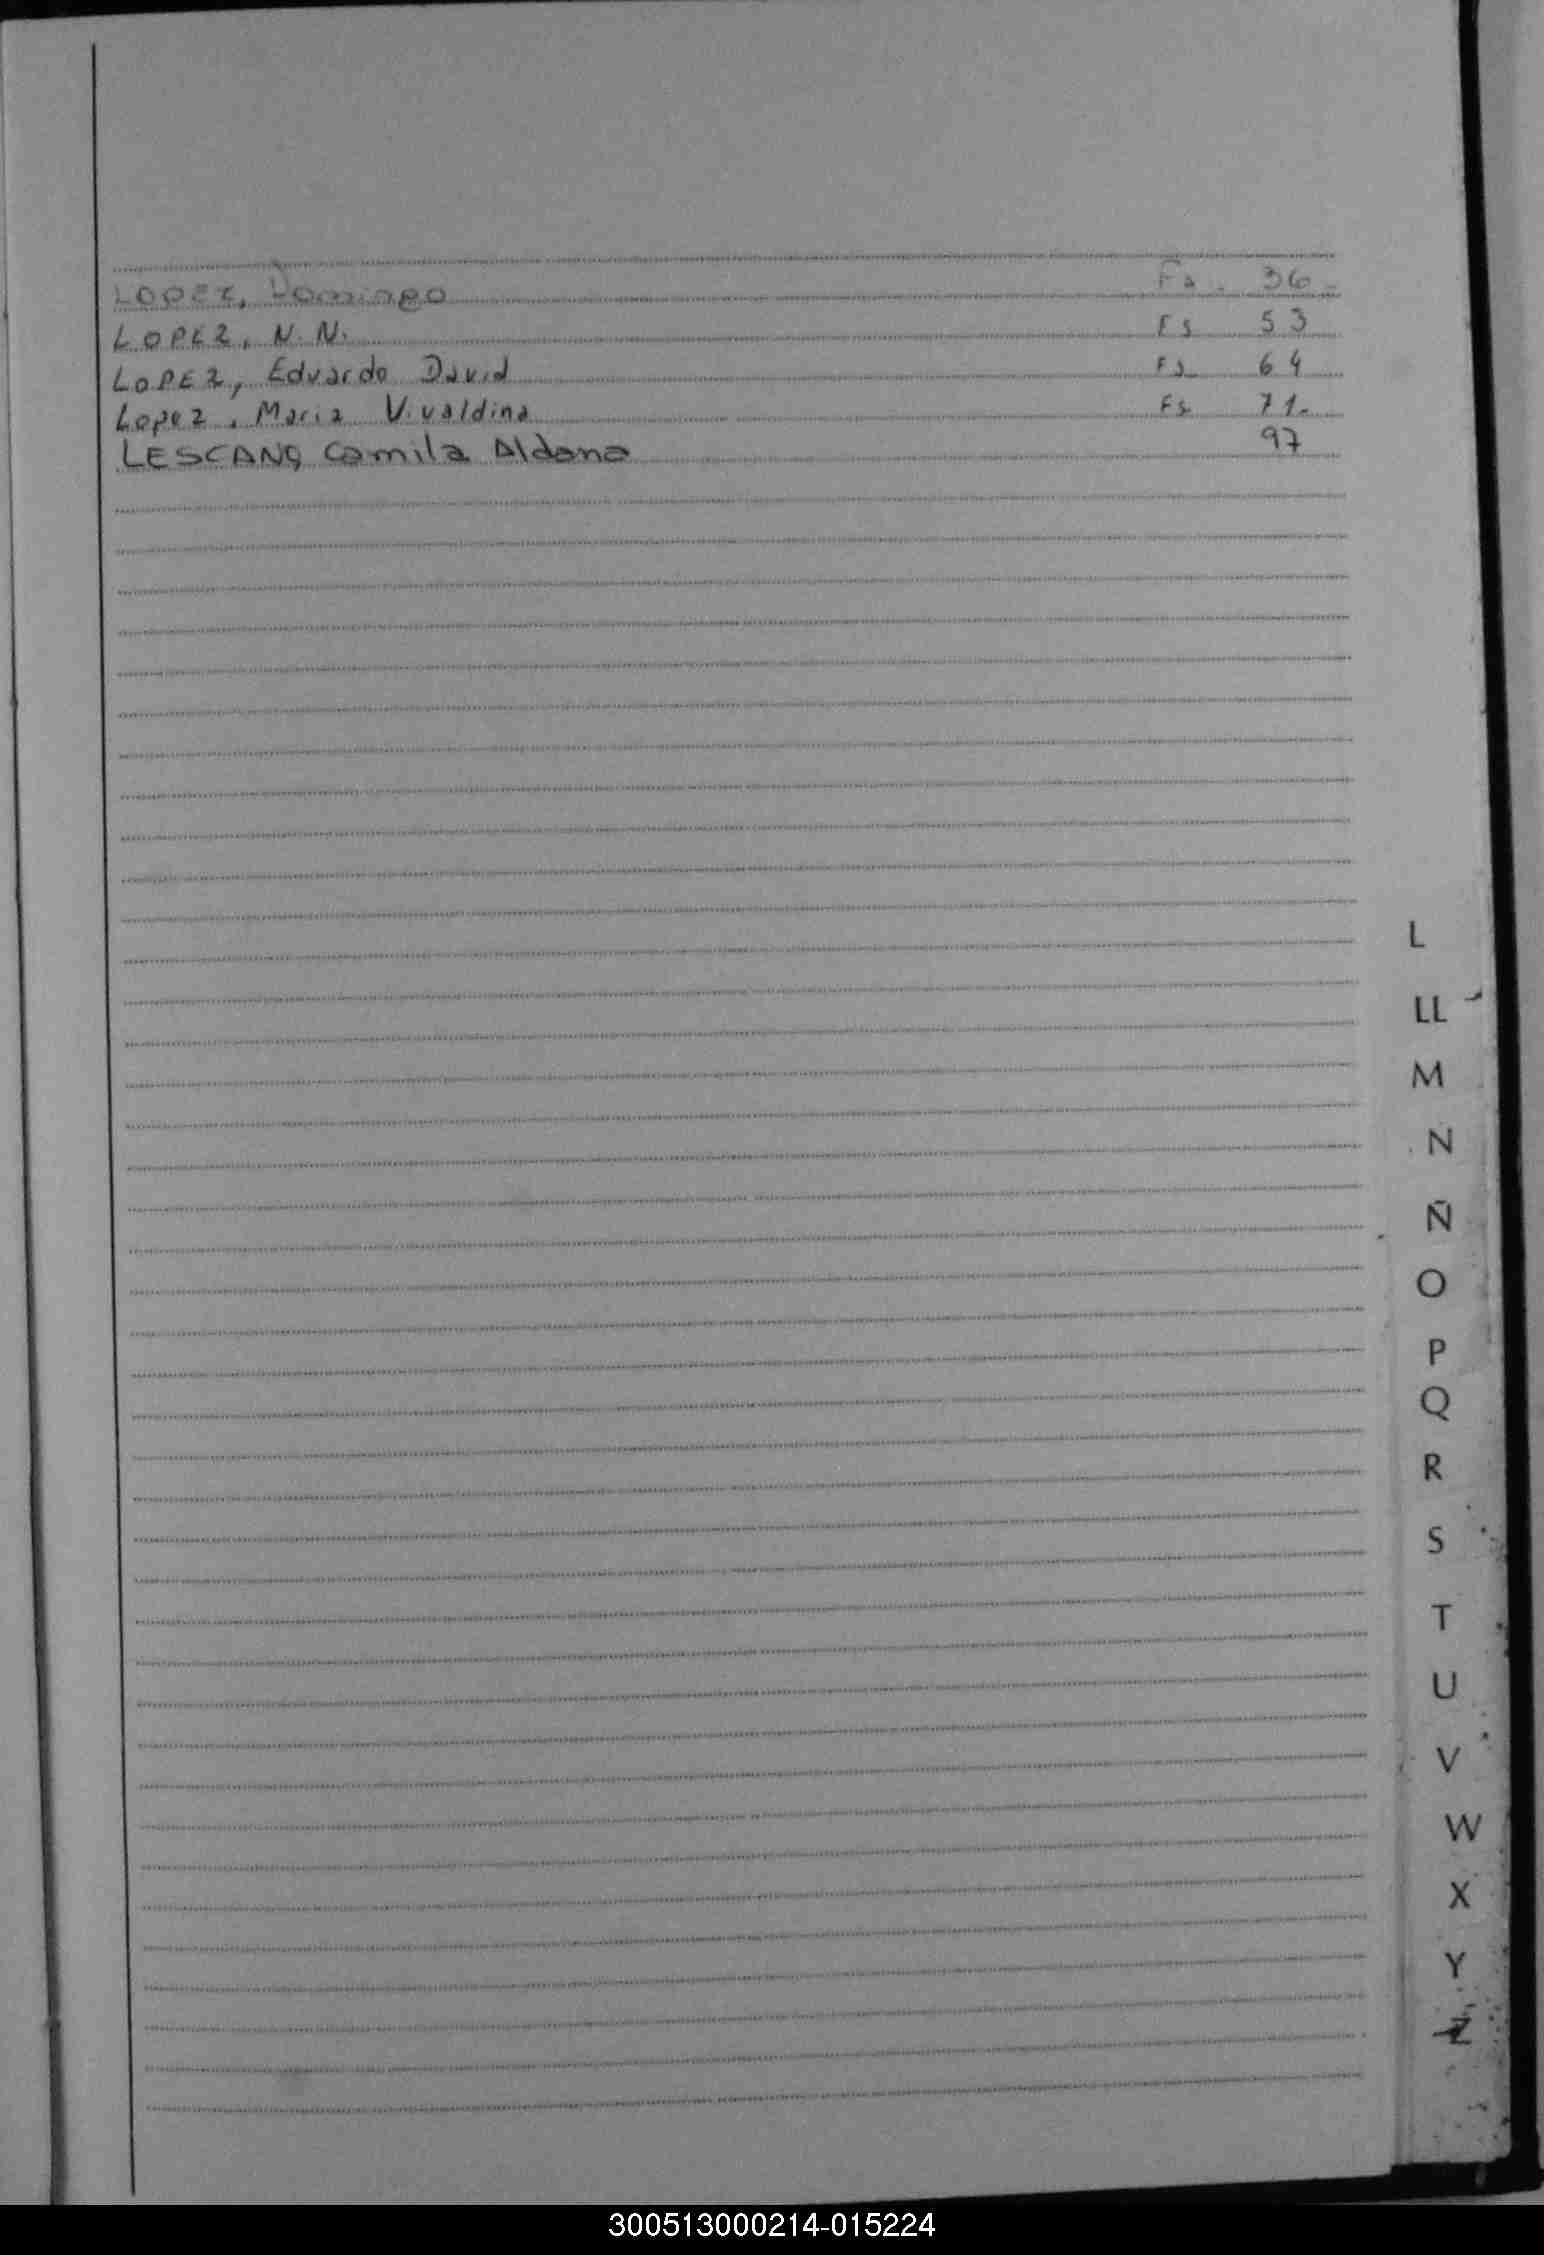 LOPEZ, Domingo Fs. 36.
LOPEZ, N. N. Fs 53
LOPEZ, Eduardo David Fs 64
Lopez, Maria Vivaldina Fs 71.
LESCANO, Camila Aldana 97
L
LL
M
N
Ñ
O
P
Q
R
S
T
U
V
W
X
Y
Z
300513000214-015224